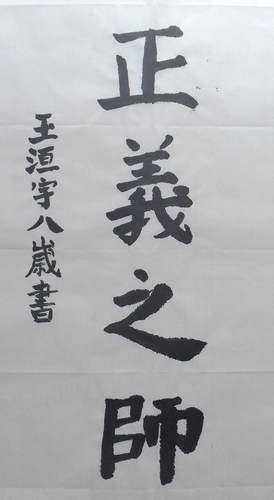 正義之師
王洹宇八歲書